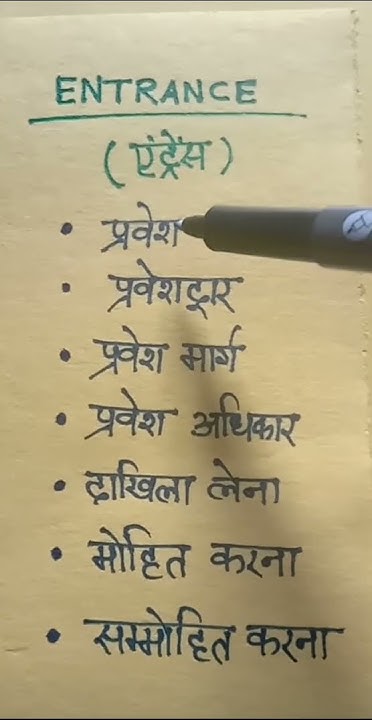 ENTRANCE
(एंट्रेंस)
• प्रवेश
• प्रवेशद्वार
• प्रवेश मार्ग
• प्रवेश अधिकार
• दाखिला लेना
• मोहित करना
• सम्मोहित करना